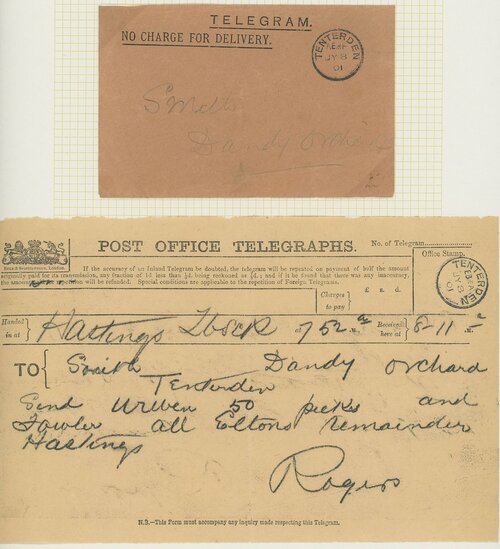 TELEGRAM.
NO CHARGE FOR DELIVERY.
TENTERDEN
JY 8
01
Dandy Orchard
POST OFFICE TELEGRAPHS.
No. of Telegram
If the accuracy of an Inland Telegram be doubted, the telegram will be repeated on payment of half the amount
originally paid for its transmission, any fraction of 1d. less than ½d. being reckoned as ½d.; and if it be found that there was any inaccuracy,
the amount paid for repetition will be refunded. Special conditions are applicable to the repetition of Foreign Telegrams.
Office Stamp.
TENTERDEN
JY 8
01
Charges to pay
£ s. d.
Handed in at
Hastings
7 52 a
Received here at
8-11
TO
Smith Dandy Orchard
Tenterden
Send 50 pecks and
Fowler all Eltons remainder
Hastings
Rogers
N.B.—This Form must accompany any inquiry made respecting this Telegram.